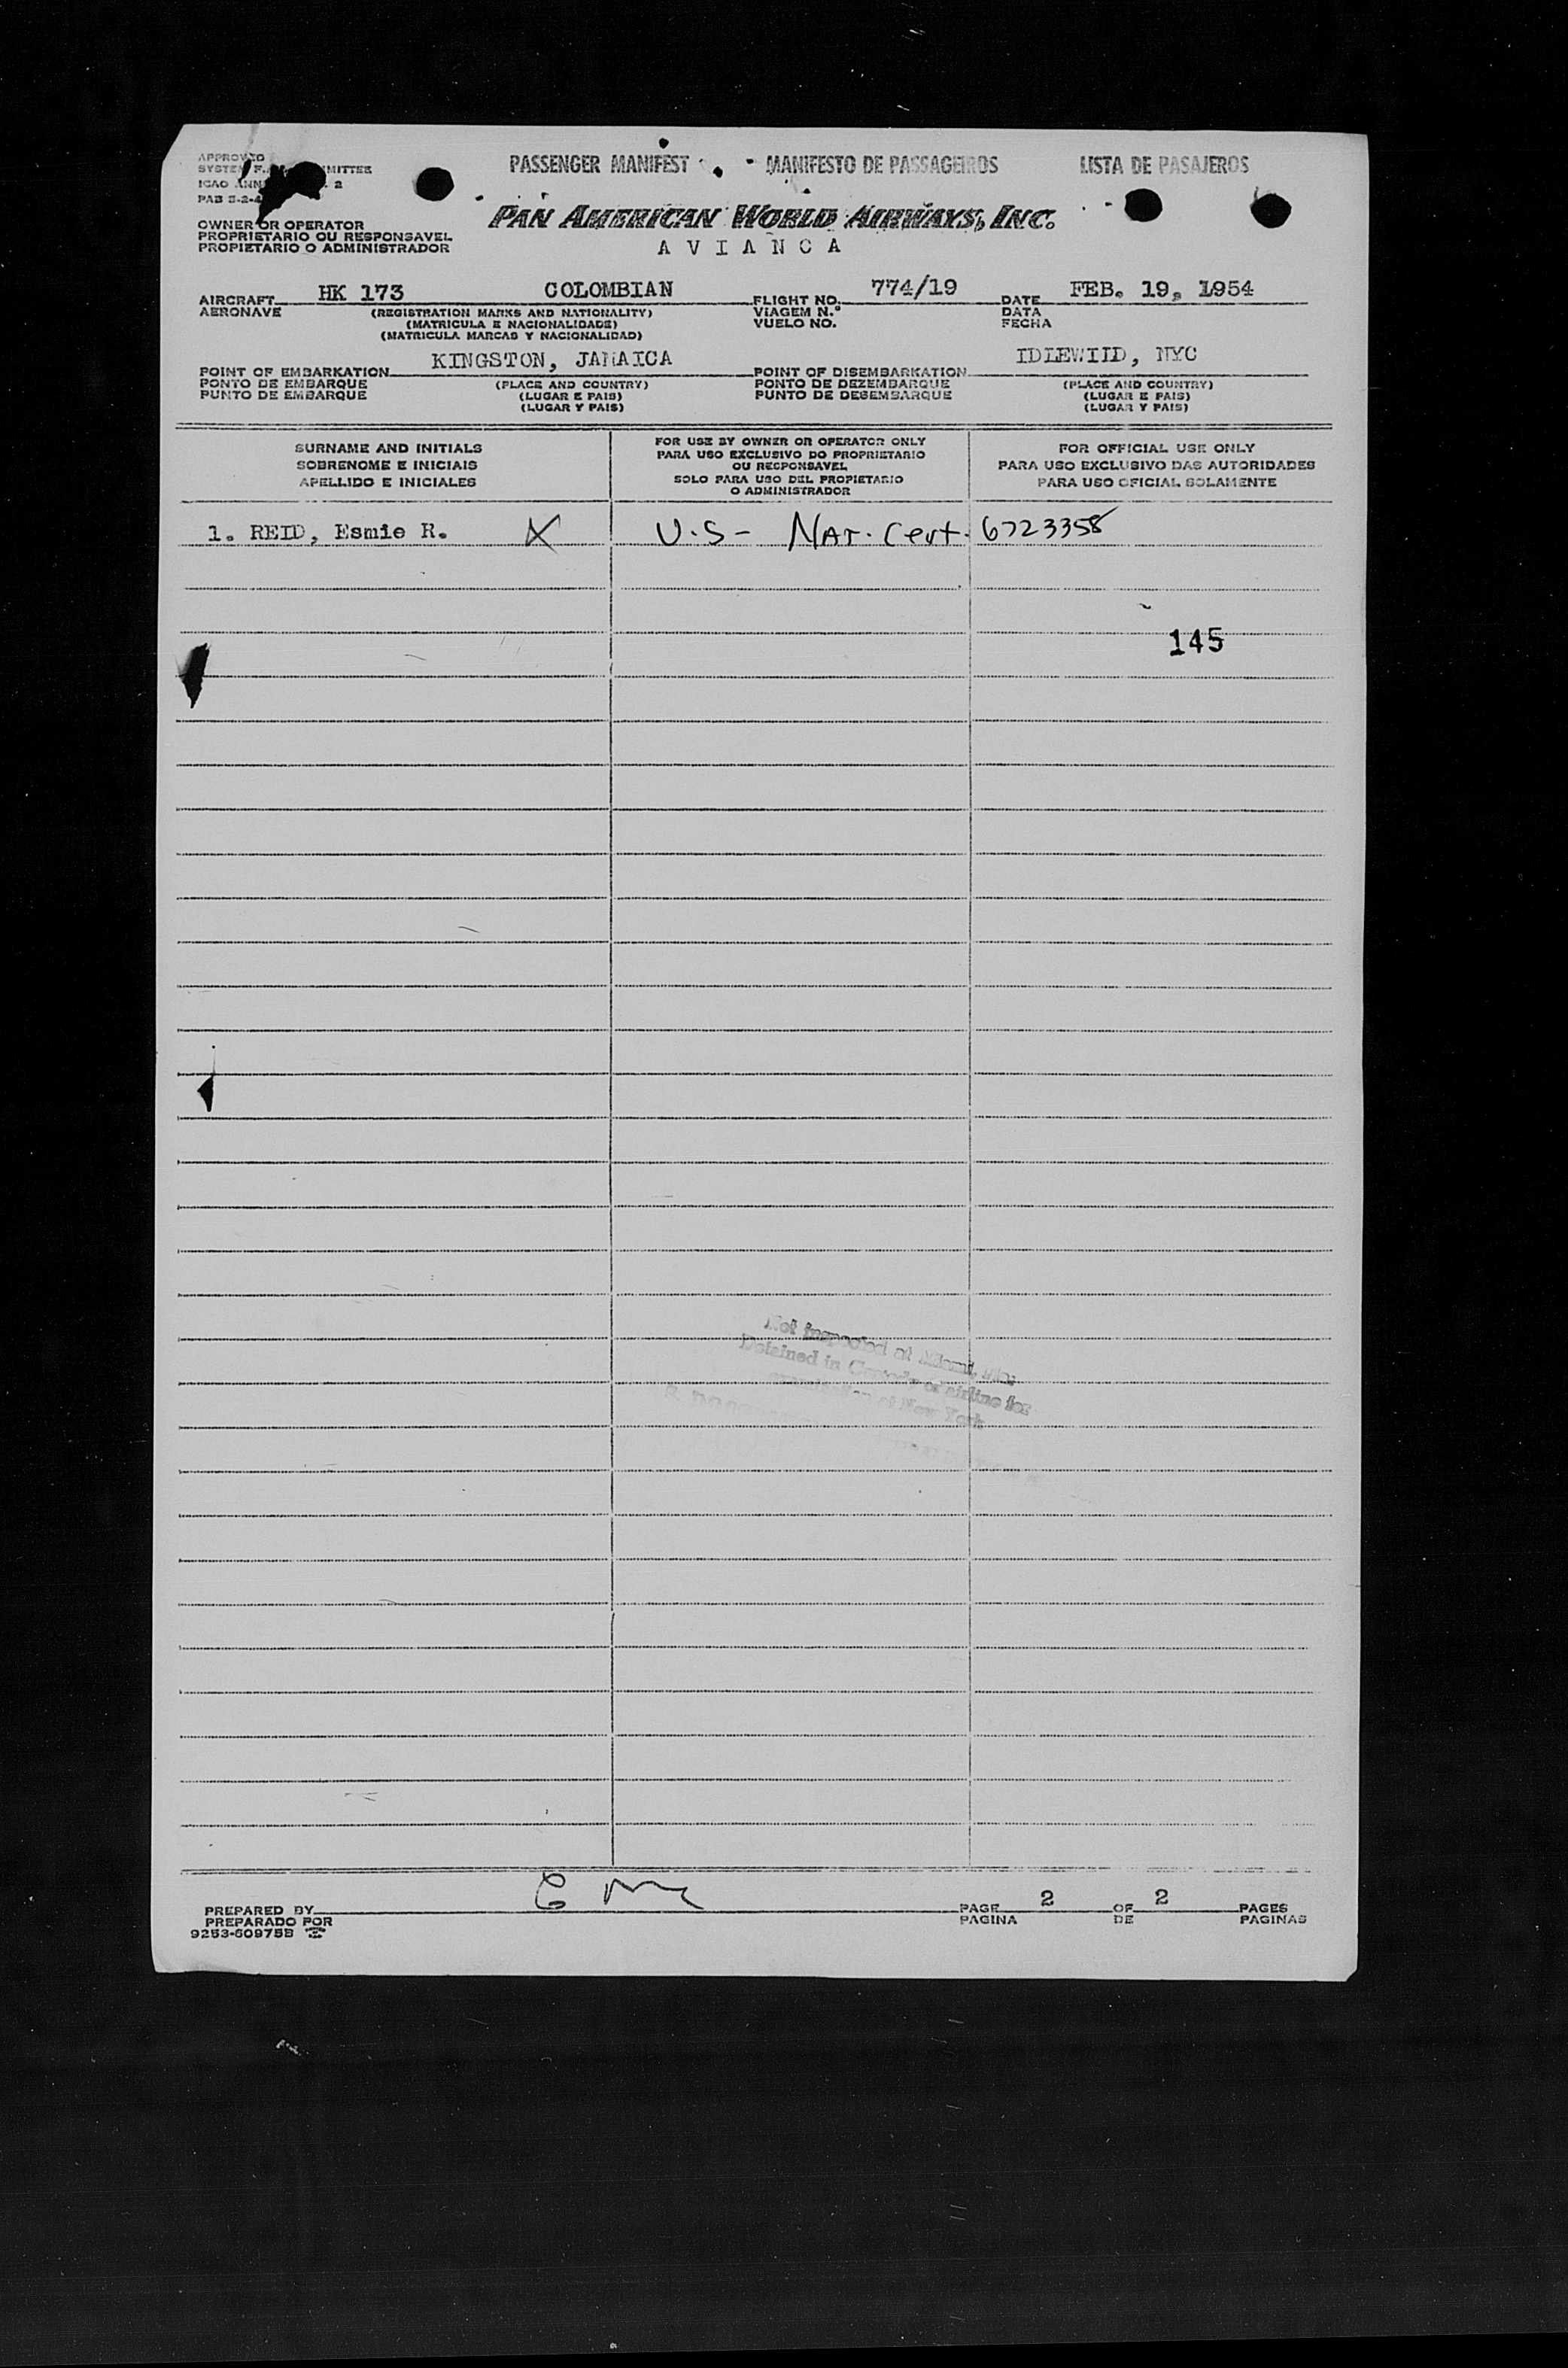 PASSENGER MANIFEST MANIFESTO DE PASSAGEIROS LISTA DE PASAJEROS
APPROVED
SYSTEM F. MITTEE
ICAO ANN 2
PAB 5-2-4
PAN AMERICAN WORLD AIRWAYS, INC.
OWNER OR OPERATOR
PROPRIETARIO OU RESPONSAVEL
PROPIETARIO O ADMINISTRADOR
AVIANCA
AIRCRAFT HK 173 COLOMBIAN FLIGHT NO. 774/19 DATE FEB. 19, 1954
AERONAVE (REGISTRATION MARKS AND NATIONALITY) VIAGEM N.º DATA
(MATRICULA E NACIONALIDADE) VUELO NO. FECHA
(MATRICULA MARCAS Y NACIONALIDAD)
POINT OF EMBARKATION KINGSTON, JAMAICA POINT OF DISEMBARKATION IDLEWILD, NYC
PONTO DE EMBARQUE (PLACE AND COUNTRY) PONTO DE DEZEMBARQUE (PLACE AND COUNTRY)
PUNTO DE EMBARQUE (LUGAR E PAIS) PUNTO DE DESEMBARQUE (LUGAR E PAIS)
(LUGAR Y PAIS) (LUGAR Y PAIS)
SURNAME AND INITIALS
SOBRENOME E INICIAIS
APELLIDO E INICIALES
FOR USE BY OWNER OR OPERATOR ONLY
PARA USO EXCLUSIVO DO PROPRIETARIO
OU RESPONSAVEL
SOLO PARA USO DEL PROPIETARIO
O ADMINISTRADOR
FOR OFFICIAL USE ONLY
PARA USO EXCLUSIVO DAS AUTORIDADES
PARA USO OFICIAL SOLAMENTE
1. REID, Esmie R. X U.S- NAT. Cert. 6723358
145
Not inspected at Miami,
Detained in Custody of airline for
examination at New York
PREPARED BY PAGE 2 OF 2 PAGES
PREPARADO POR PAGINA DE PAGINAS
9253-60975B